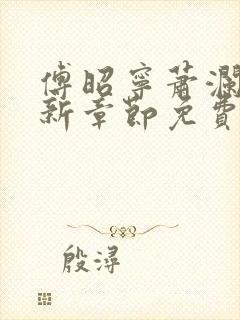 傅昭寧蕭瀾
新章節免費
殷潯